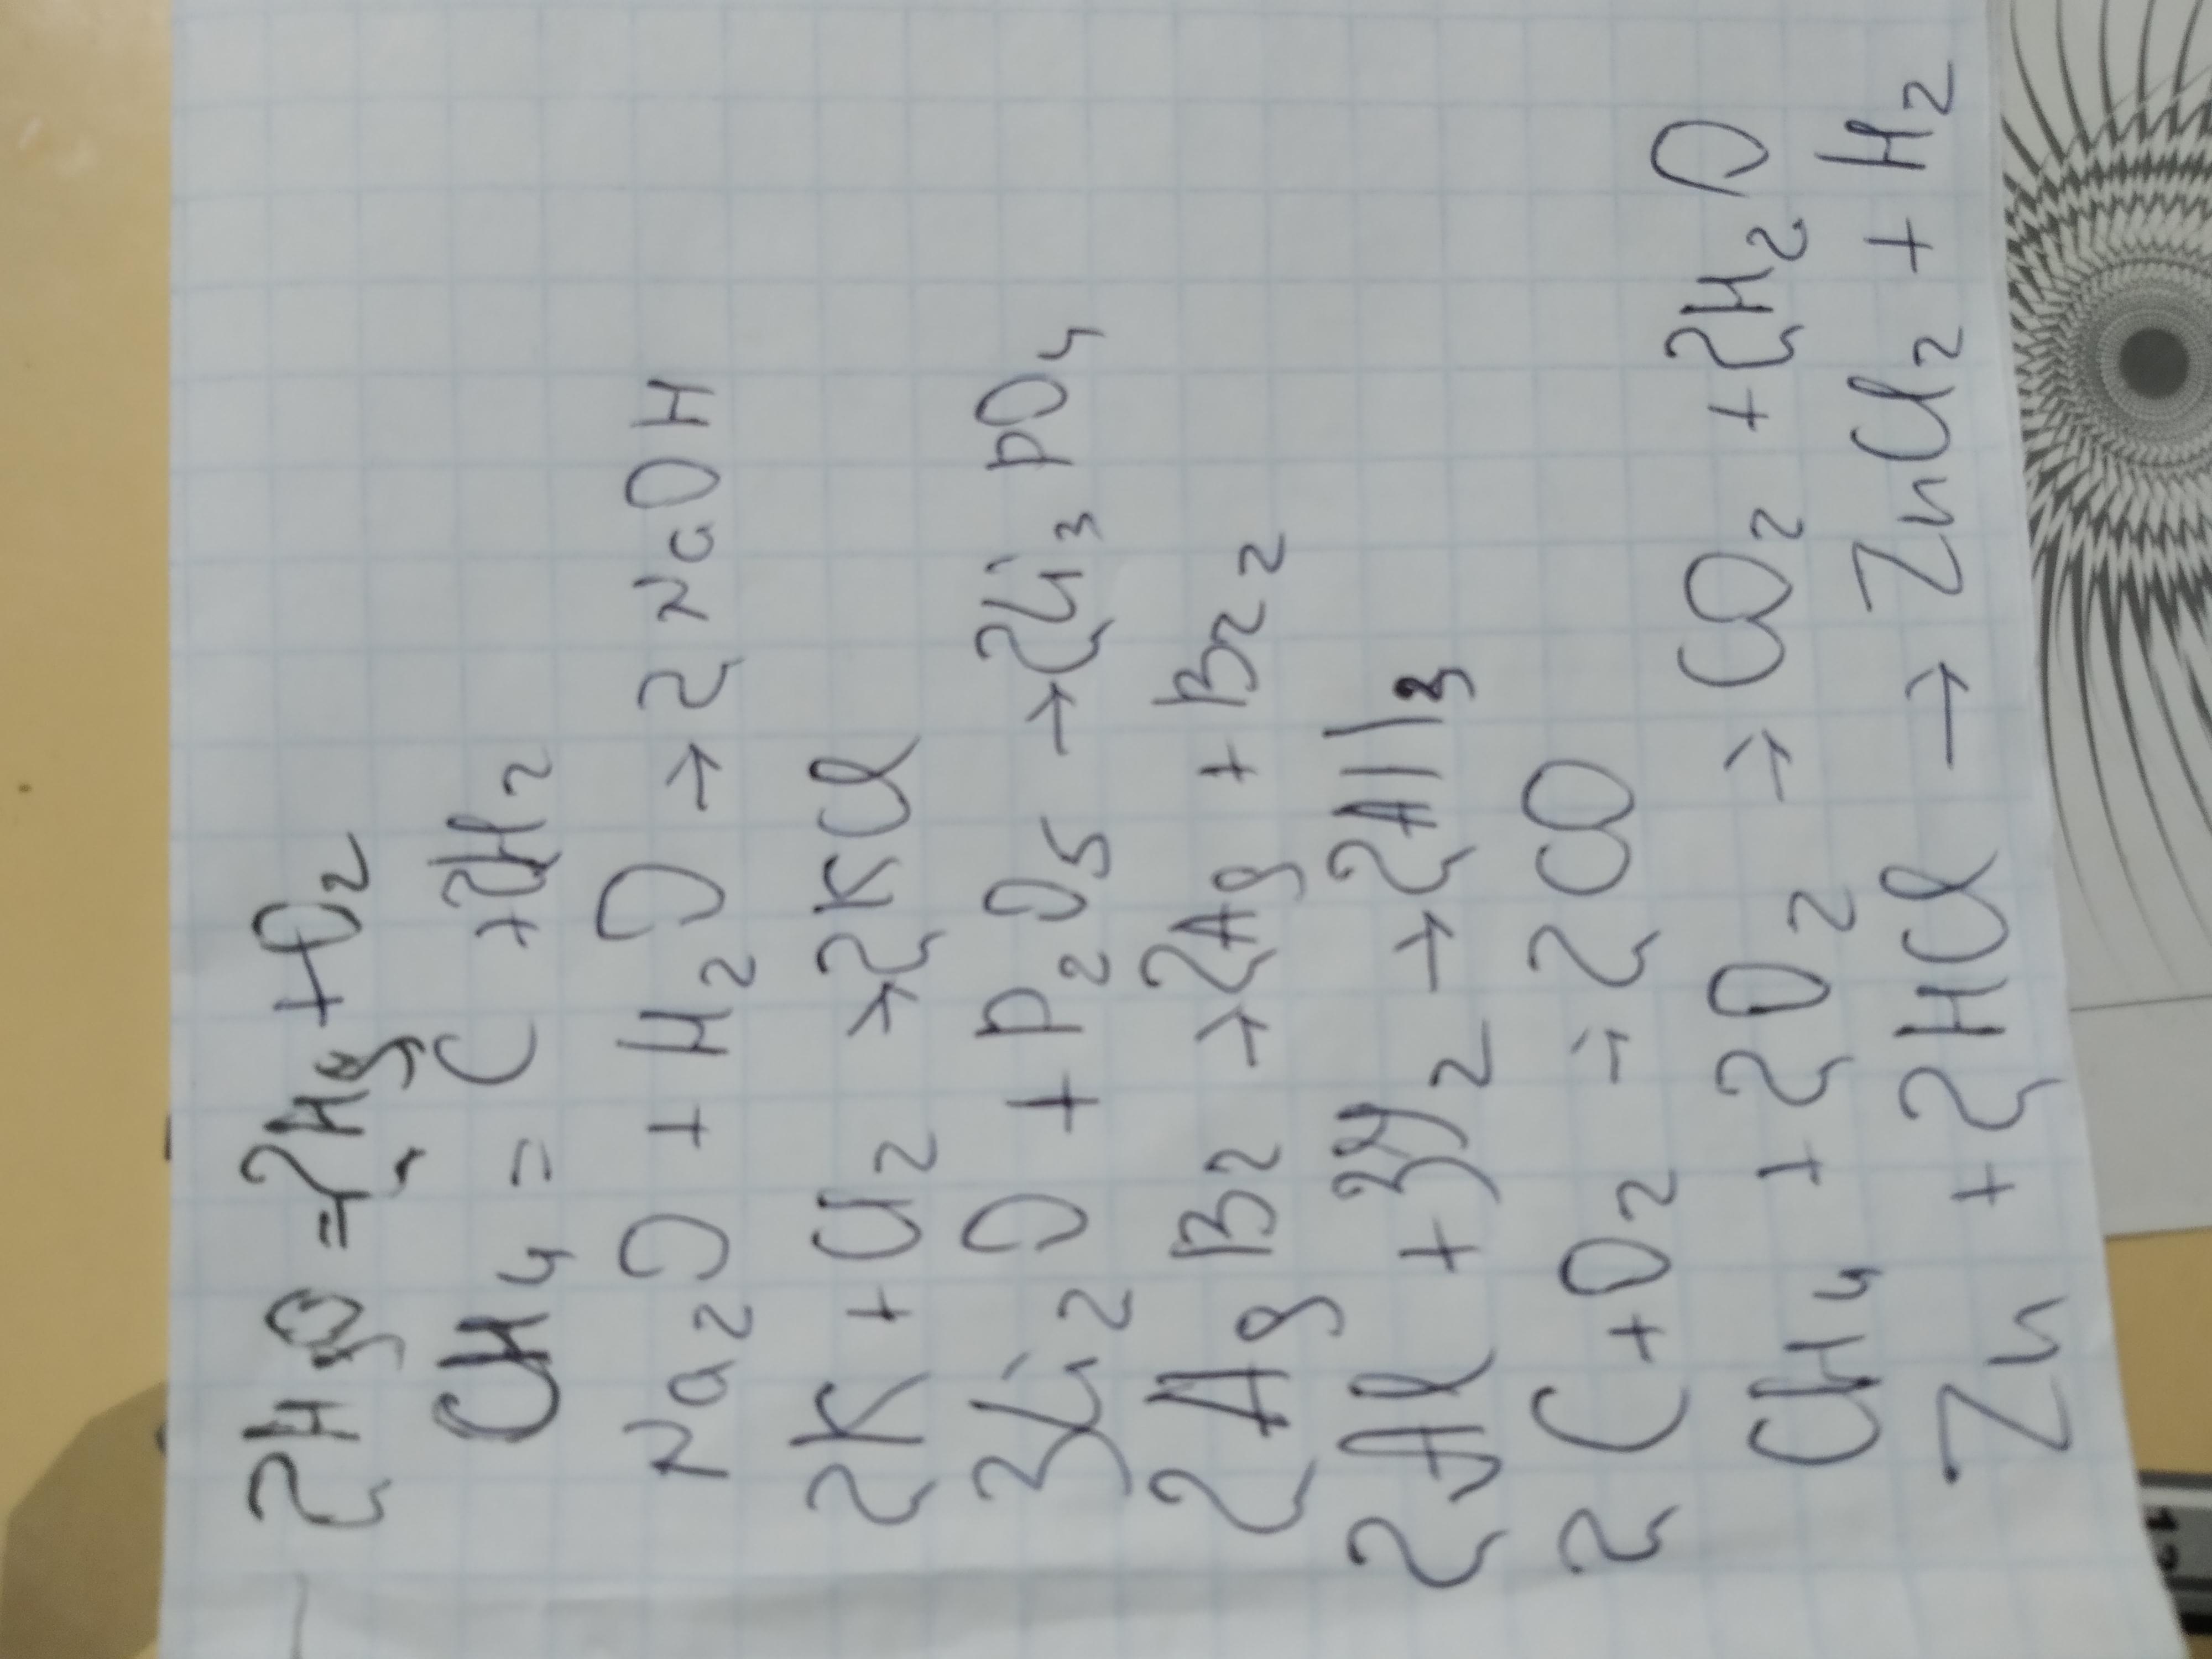 2HgO = 2Hg + O2
CH4 = C + 2H2
Na2O + H2O → 2NaOH
2K + Cl2 → 2KCl
3Li2O + P2O5 → 2Li3PO4
2AgBr → 2Ag + Br2
2Al + 3У2 → 2AlI3
2C + O2 → 2CO
CH4 + 2O2 → CO2 + 2H2O
Zn + 2HCl → ZnCl2 + H2
12